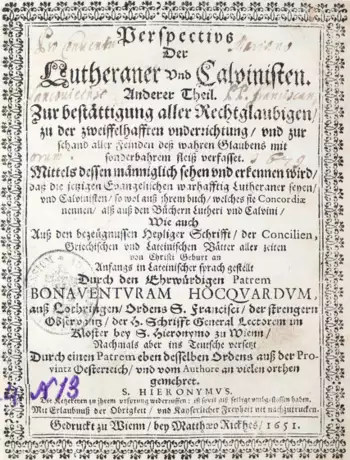 Perspectivs
Der
Lutheraner Vnd Calvinisten.
Anderer Theil.
Zur bestättigung aller Rechtglaubigen/
zu der zweiffelhafften vnderrichtung/ vnd zur
schand aller Feinden deß wahren Glaubens mit
sonderbahrem fleiß verfasset.
Mittels dessen männiglich sehen vnd erkennen wird/
daß die jetzigen Evangelischen warhafftig Lutheraner seyen/
vnd Calvinisten/ so wol auß ihrem buch/ welches sie Concordiæ
nennen/ alß auß den Büchern Lutheri vnd Calvini/
Wie auch
Auß den bezeugnussen Heyliger Schrifft/ der Concilien,
Griechischen vnd Lateinischen Vätter aller zeiten
von Christi Geburt an
Anfangs in Lateinischer sprach gestellt
Durch den Ehrwürdigen Patrem
BONAVENTVRAM HOCQVARDVM,
auß Lothringen/ Ordens S. Francisci/ der strengern
Observanz/ der H. Schrifft General Lectorem im
Kloster bey S. Hieronymo zu Wienn/
Nachmals aber ins Teutsche versetzt
Durch einen Patrem eben desselben Ordens auß der Pro-
vintz Oesterreich/ vnd vom Authore an vielen orthen
gemehret.
S. HIERONYMVS.
Die Ketzereyen zu ihrem vrsprung widerruffen: ist soviel alß selbige
Mit Erlaubnuß der Obrigkeit/ vnd Kayserlicher Freyheit nit nachzutrucken.
Gedruckt zu Wienn/ bey Matthæo Rickhes/ 1651.
N 13